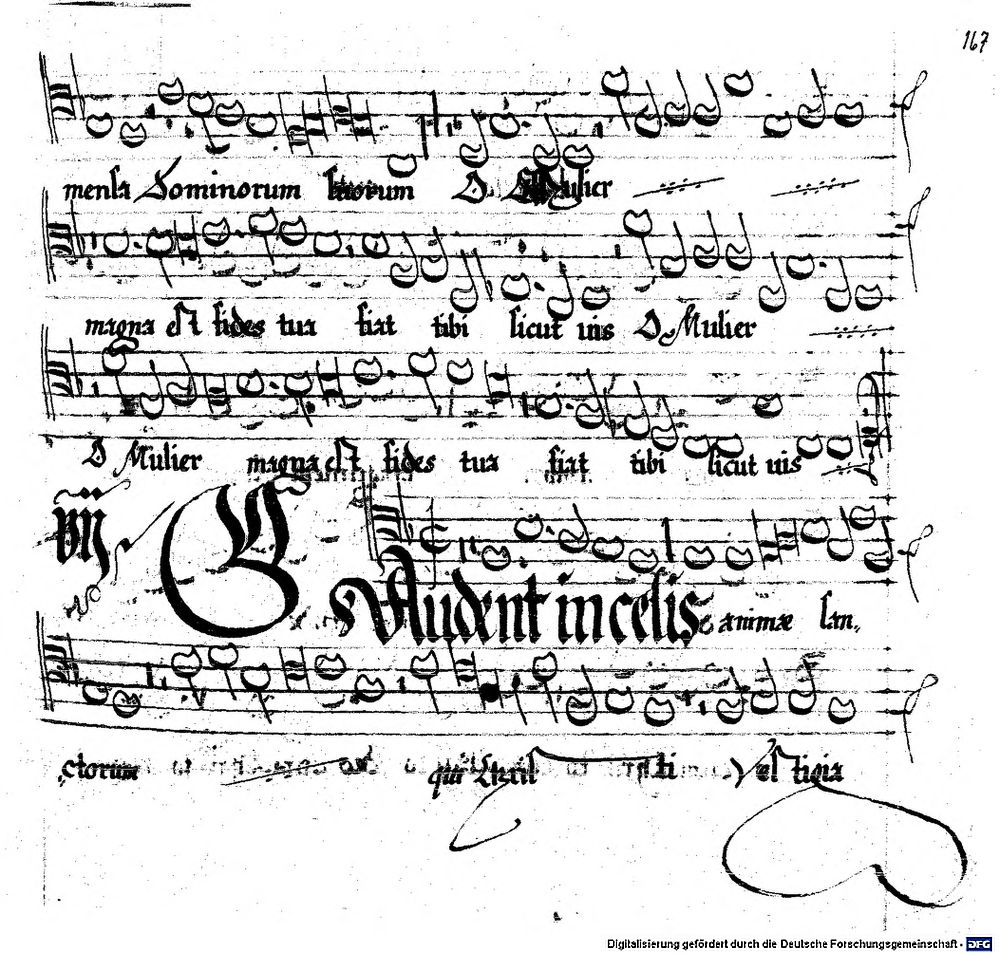 167
mensa Dominorum suorum O Mulier
magna est fides tua fiat tibi sicut uis O Mulier
O Mulier magna est fides tua fiat tibi sicut uis
GAudent in celis animæ san,,
ctorum qui Christi vestigia
Digitalisierung gefördert durch die Deutsche Forschungsgemeinschaft - DFG